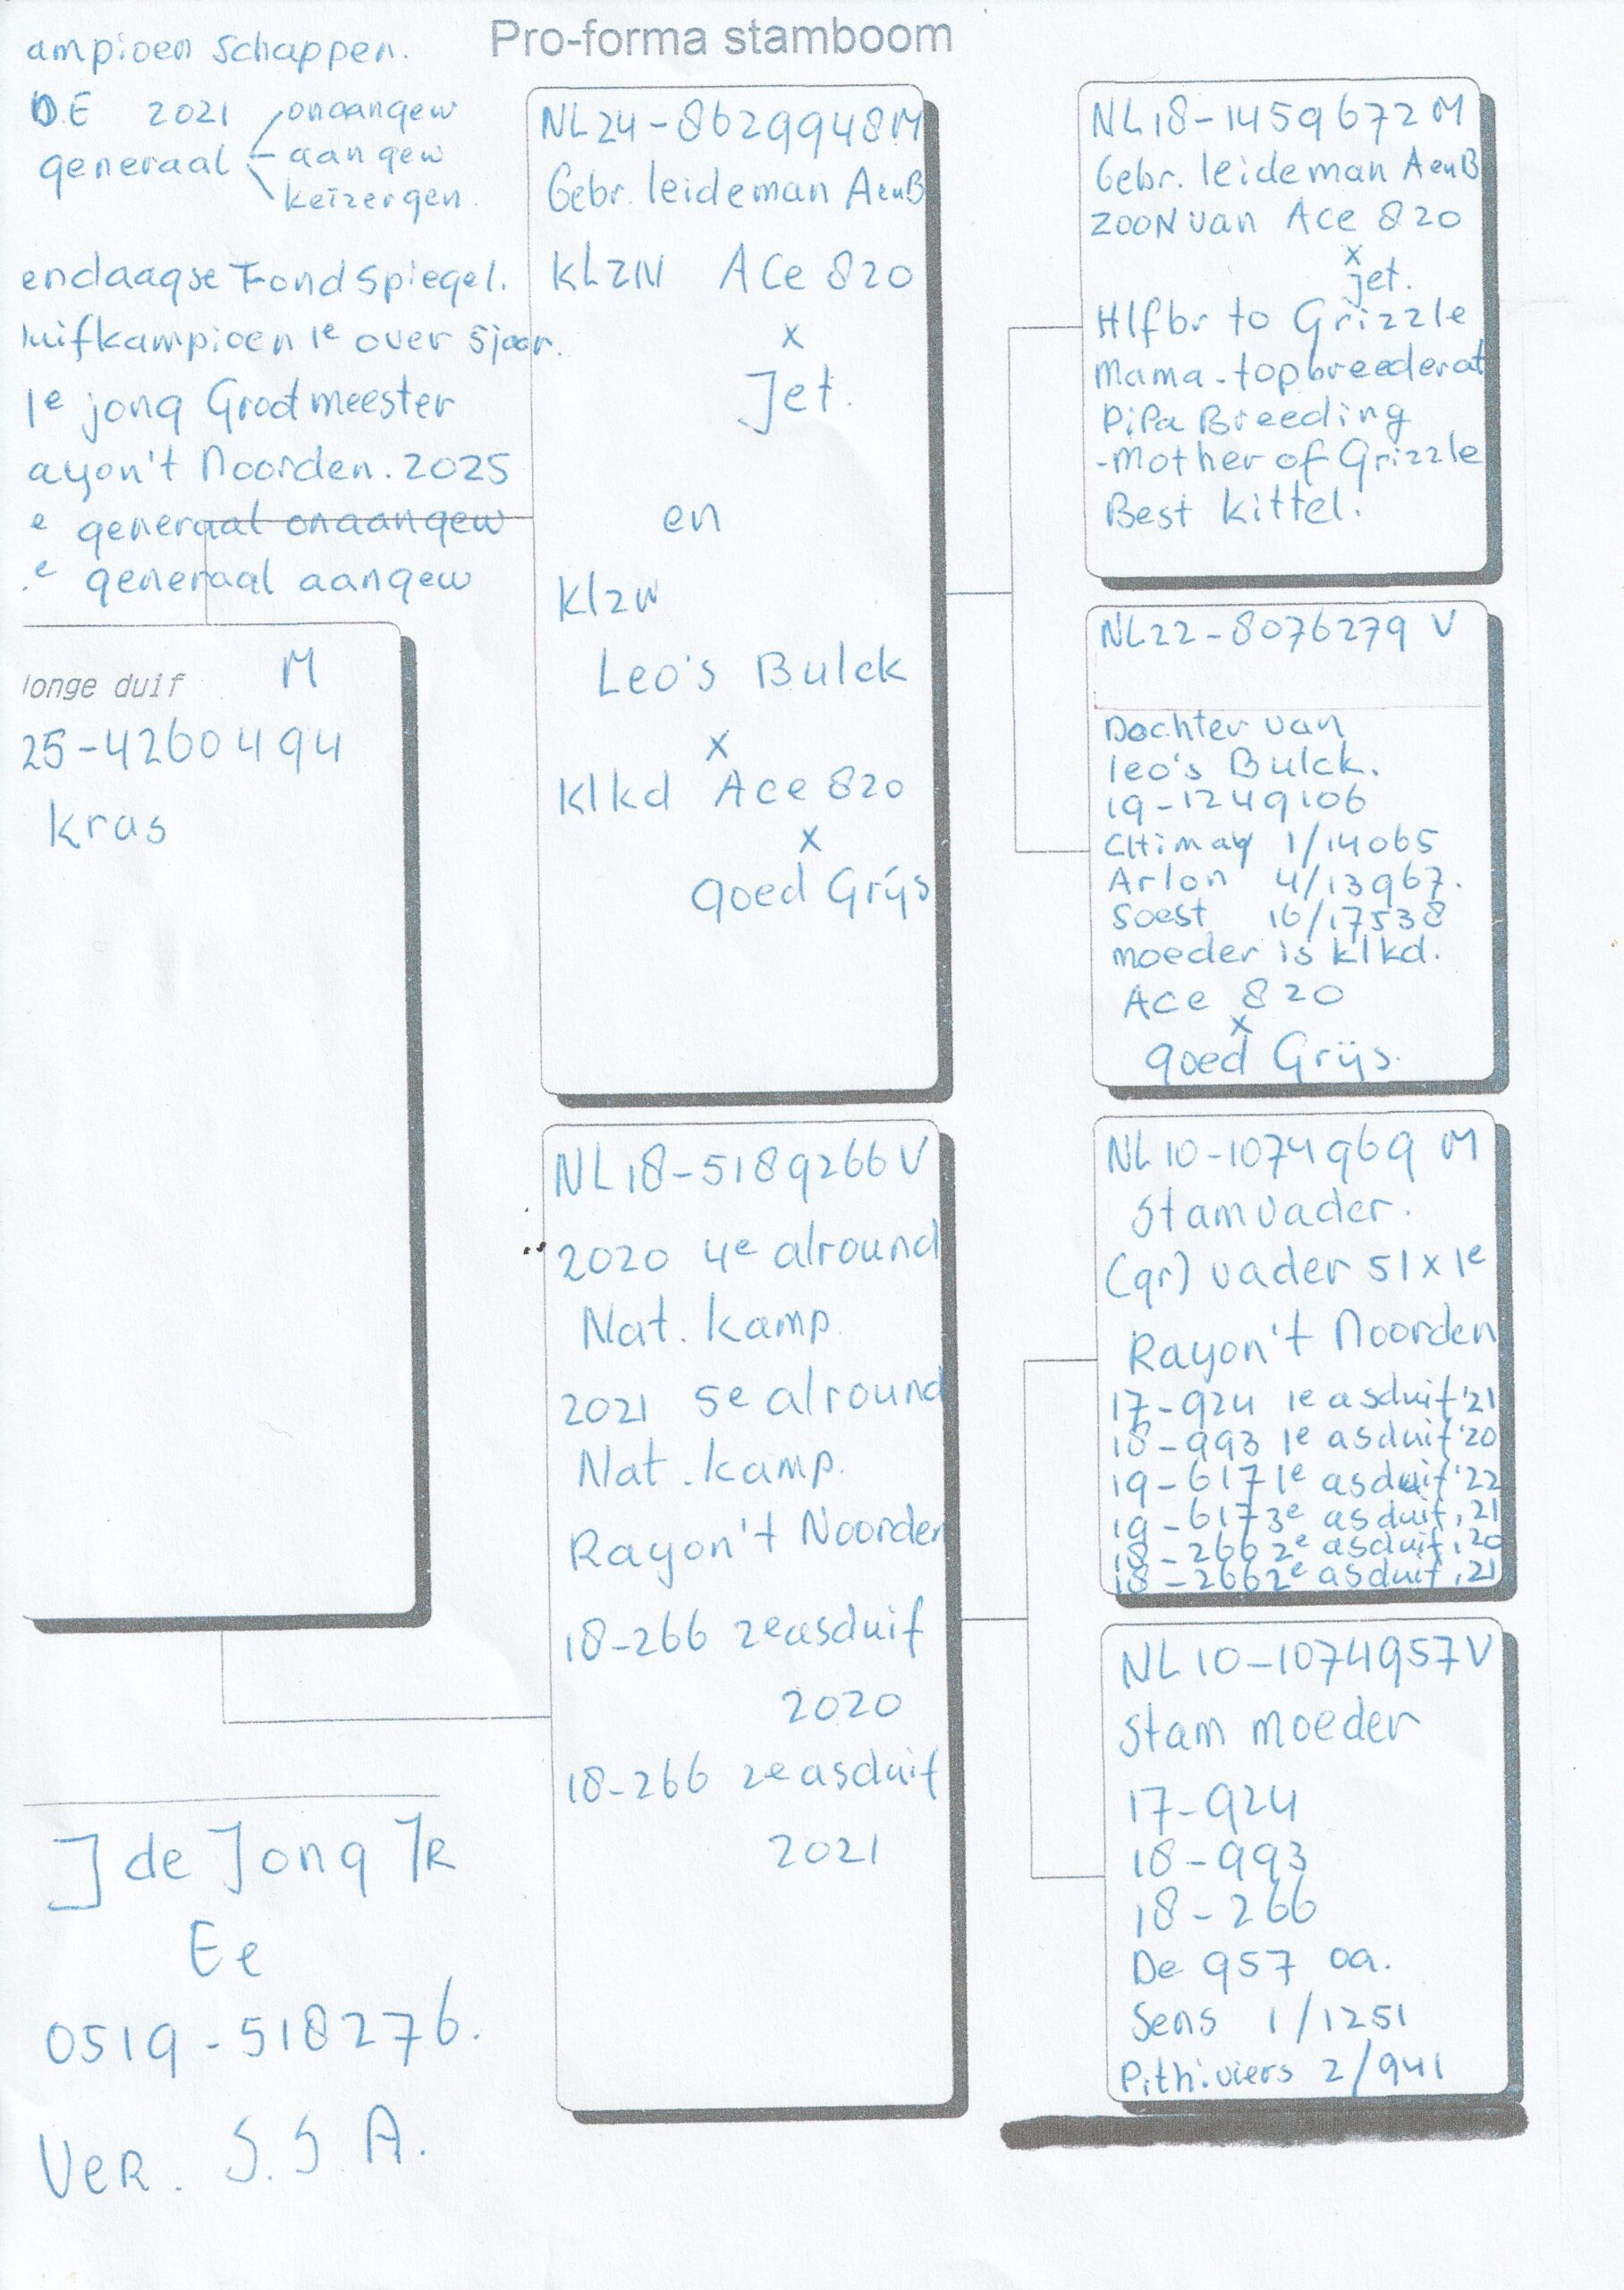 Pro-forma stamboom
ampioen schappen.
D.E 2021 onaangew
generaal aangew
keizergen.
endaagse Fond Spiegel.
uifkampioen 1e over 5 jaar.
1e jong Grootmeester
ayon't Noorden. 2025
e generaal onaangew
e generaal aangew
Jonge duif M
25-4260494
kras
J de Jong JR
Ee
0519-518276.
VER. S.S A.
NL24-8629948M
Gebr. leideman AenB
KLZN Ace 820
x
Jet.
en
Klzn
Leo's Bulck
x
Klkd Ace 820
x
goed Grijs
NL18-5189266V
2020 4e alround
Nat. kamp
2021 5e alround
Nat. kamp.
Rayon't Noorden
18-266 2e asduif
2020
18-266 2e asduif
2021
NL18-1459672M
Gebr. leideman AenB
ZOON van Ace 820
x
jet.
Hlfbr to Grizzle
Mama-topbreeder at
PiPa Breeding
-Mother of Grizzle
Best kittel!
NL22-8076279 V
Dochter van
leo's Bulck.
19-1249106
CHimay 1/14065
Arlon 4/13967.
Soest 16/17538
moeder is klkd.
Ace 820
x
goed Grijs.
NL10-1074969 M
Stamvader.
(gr) vader 51x1e
Rayon't Noorden
17-924 1e asduif '21
18-993 1e asduif '20
19-617 1e asduif '22
19-617 3e asduif, 21
18-266 2e asduif, 20
18-266 2e asduif, 21
NL10-1074957V
Stam moeder
17-924
18-993
18-266
De 957 oa.
Sens 1/1251
Pithiviers 2/941